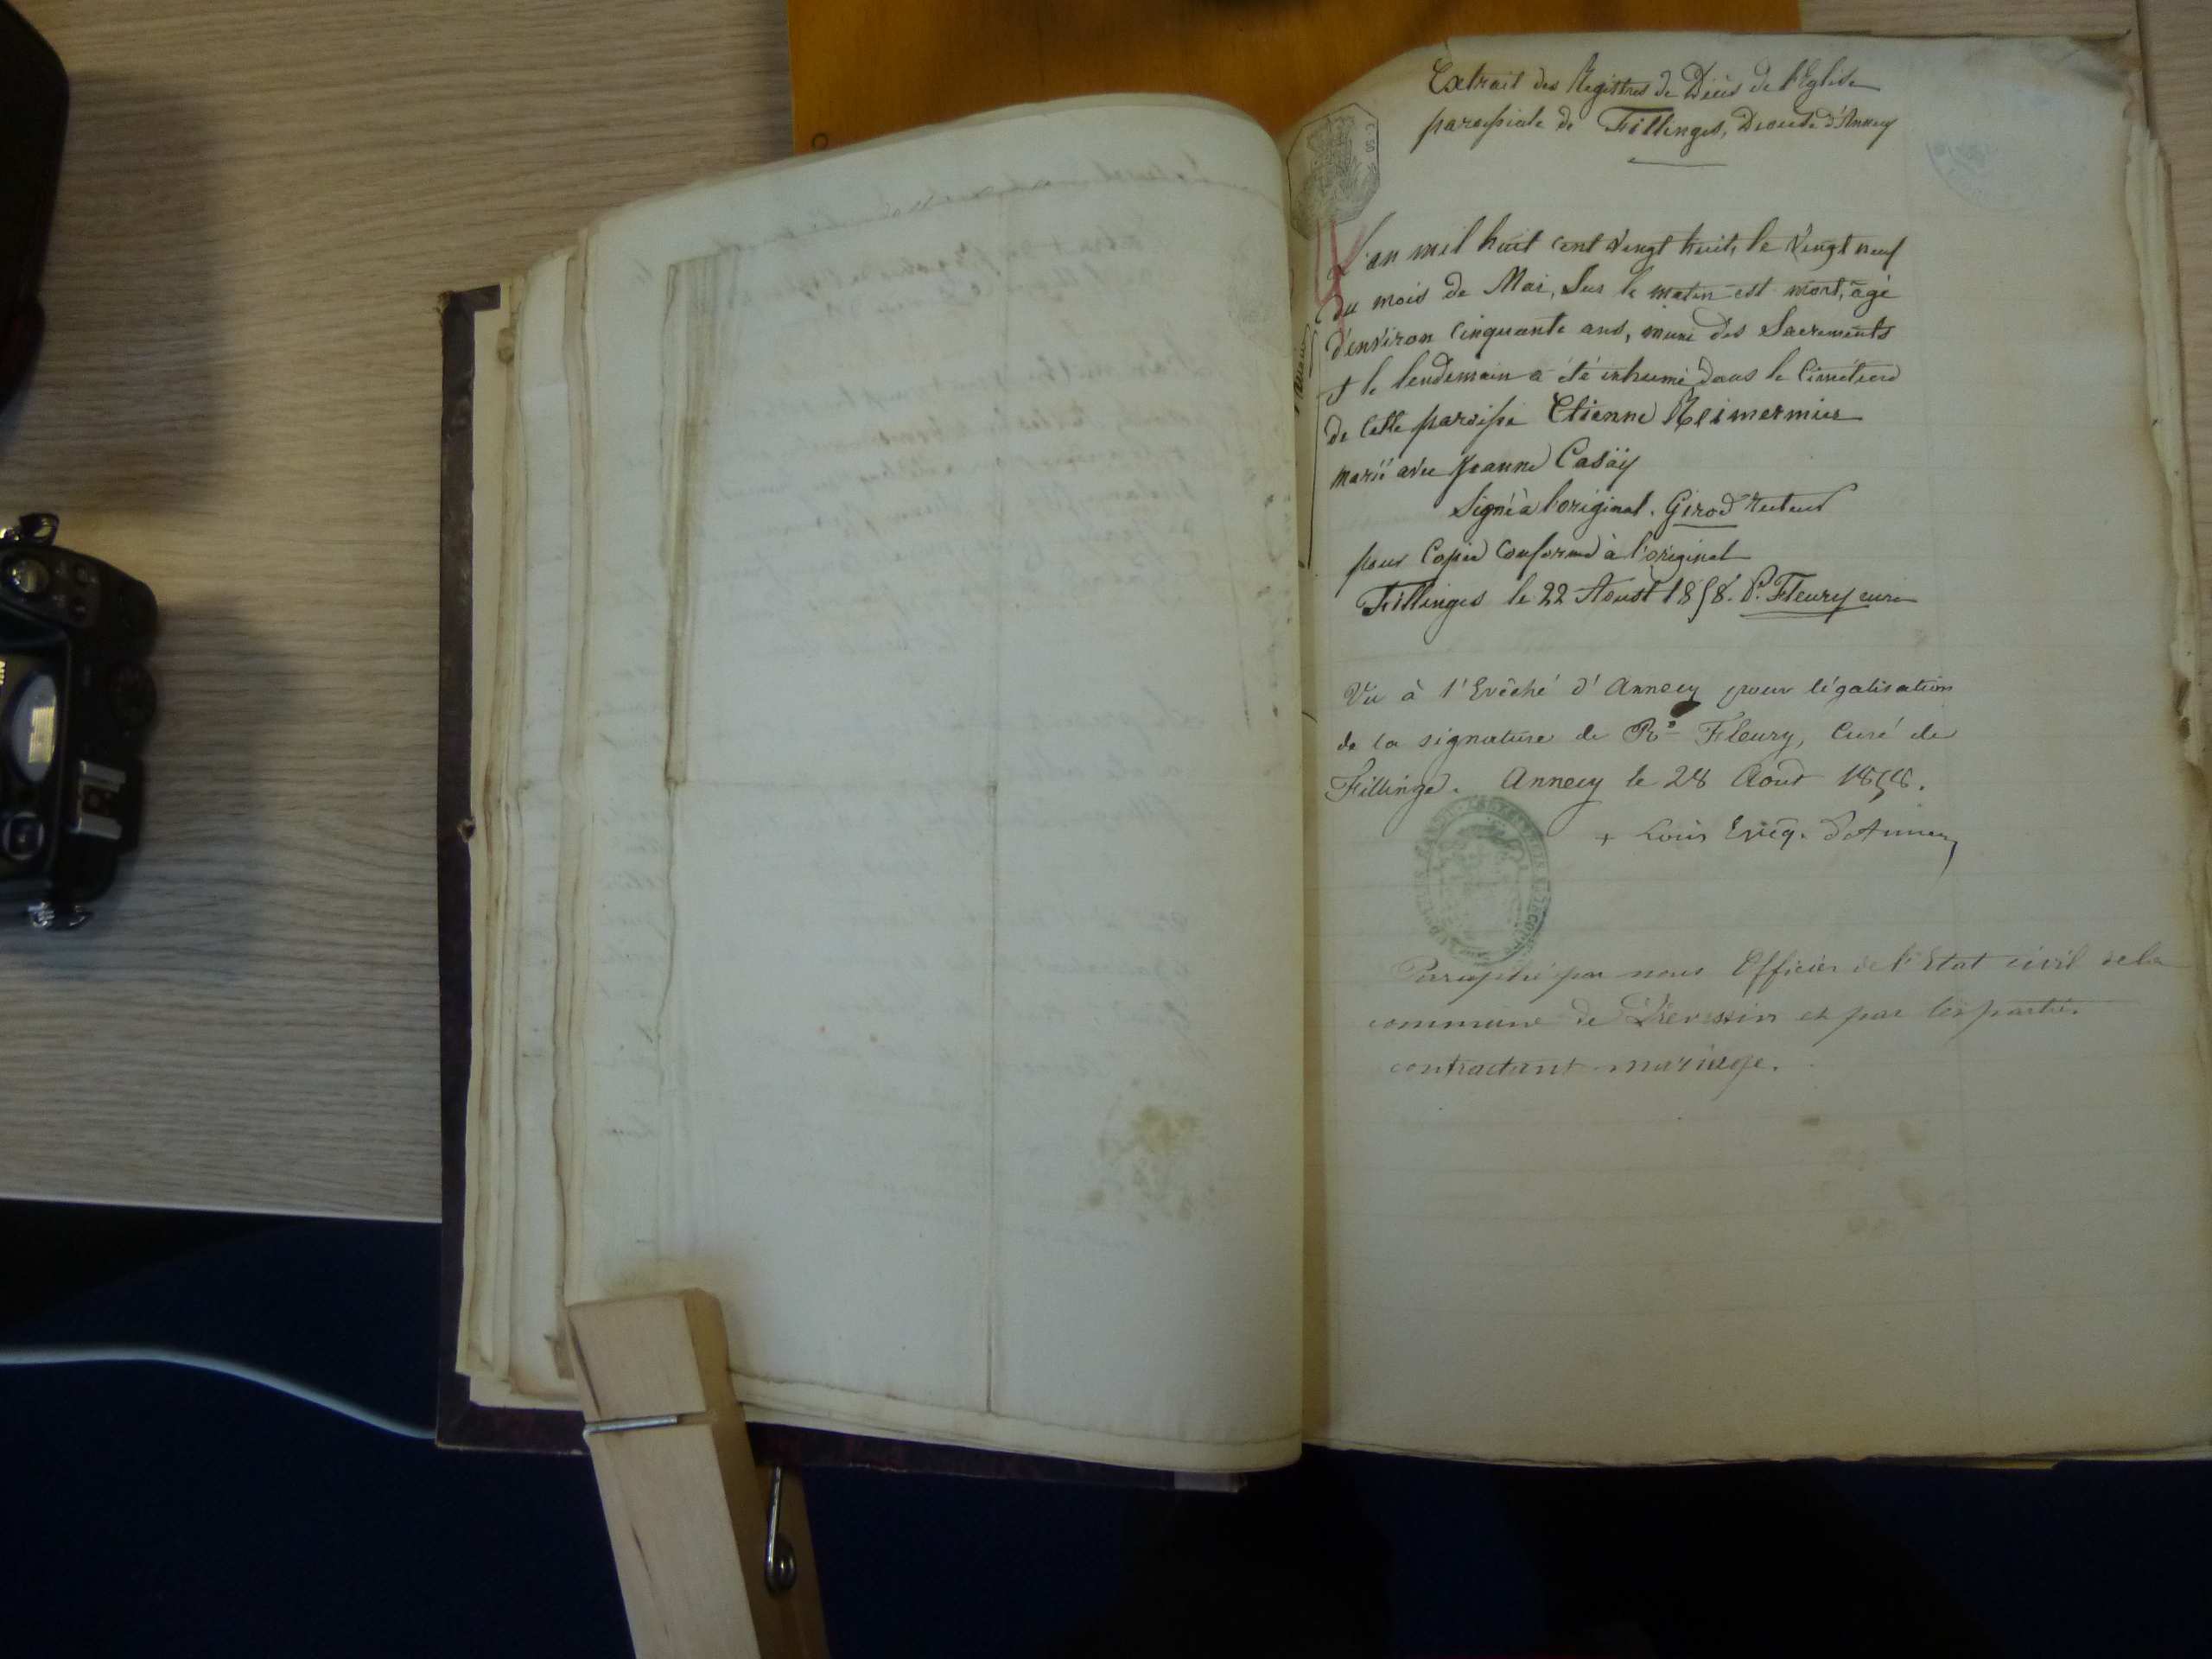 Extrait des Registres de Décès de l'Eglise
paroissiale de Fillinges, Diocèse d'Annecy
L'an mil huit cent vingt huit, le vingt neuf
du mois de Mai, sur le matin est mort, agé
d'environ cinquante ans, muni des Sacrements
et le lendemain a été inhumé dans le Cimetiere
de cette paroisse Etienne
marié avec Jeanne Casaÿ
Signé à l'original. Girod recteur
pour Copie Conforme à l'original
Fillinges le 22 Aoust 1858. P. Fleury curé
Vu à l'Evêché d'Annecy pour légalisation
de la signature de Rd Fleury, Curé de
Fillinge. Annecy le 28 Aout 1858.
+ Louis Evêq. d'Annecy
Paraphé par nous Officier de l'Etat civil de la
commune de et par les parties
contractant mariage.